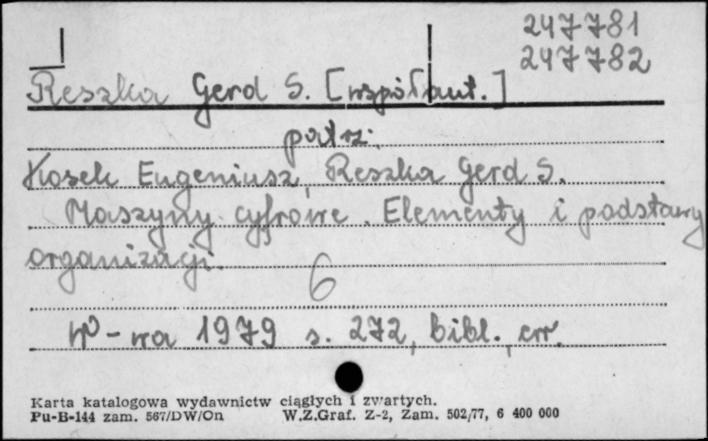 247781
247782
Reszka Gerd S. [współaut.]
patrz:
Kosek Eugeniusz, Reszka Gerd S.
Maszyny cyfrowe. Elementy i podstawy
organizacji.
6
W-wa 1979 s. 272, bibl., err.
Karta katalogowa wydawnictw ciągłych i zwartych.
Pu-B-144 zam. 567/DW/On W.Z.Graf. Z-2, Zam. 502/77, 6 400 000